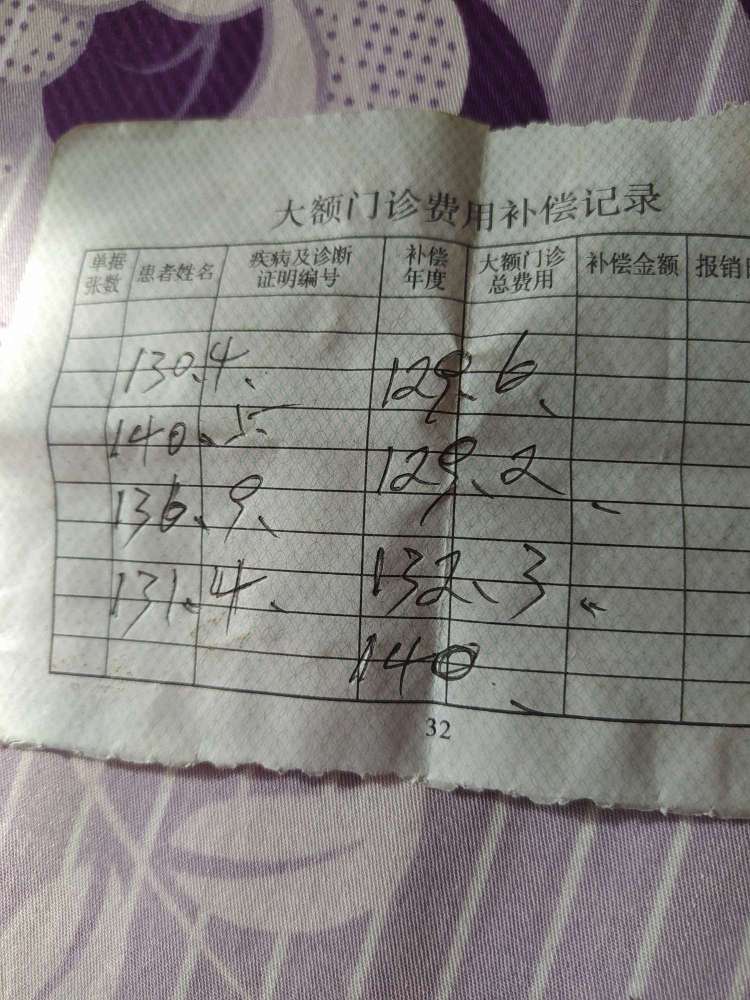 大额门诊费用补偿记录
单据张数 患者姓名 疾病及诊断证明编号 补偿年度 大额门诊总费用 补偿金额 报销
130.4、 129.6、
140.5 129.2、
136.9、 132.3、
131.4、 140、
32